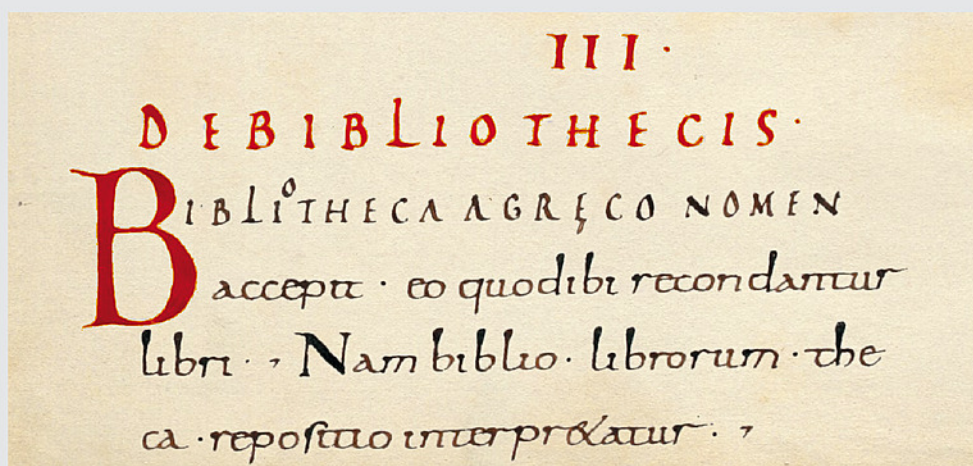 III·
DE BIBLIOTHECIS·
BIBLIOTHECA A GRĘCO NOMEN
accepit · eo quod ibi recondantur
libri · , Nam biblio · librorum · the
ca · repositio interpr&atur · ,